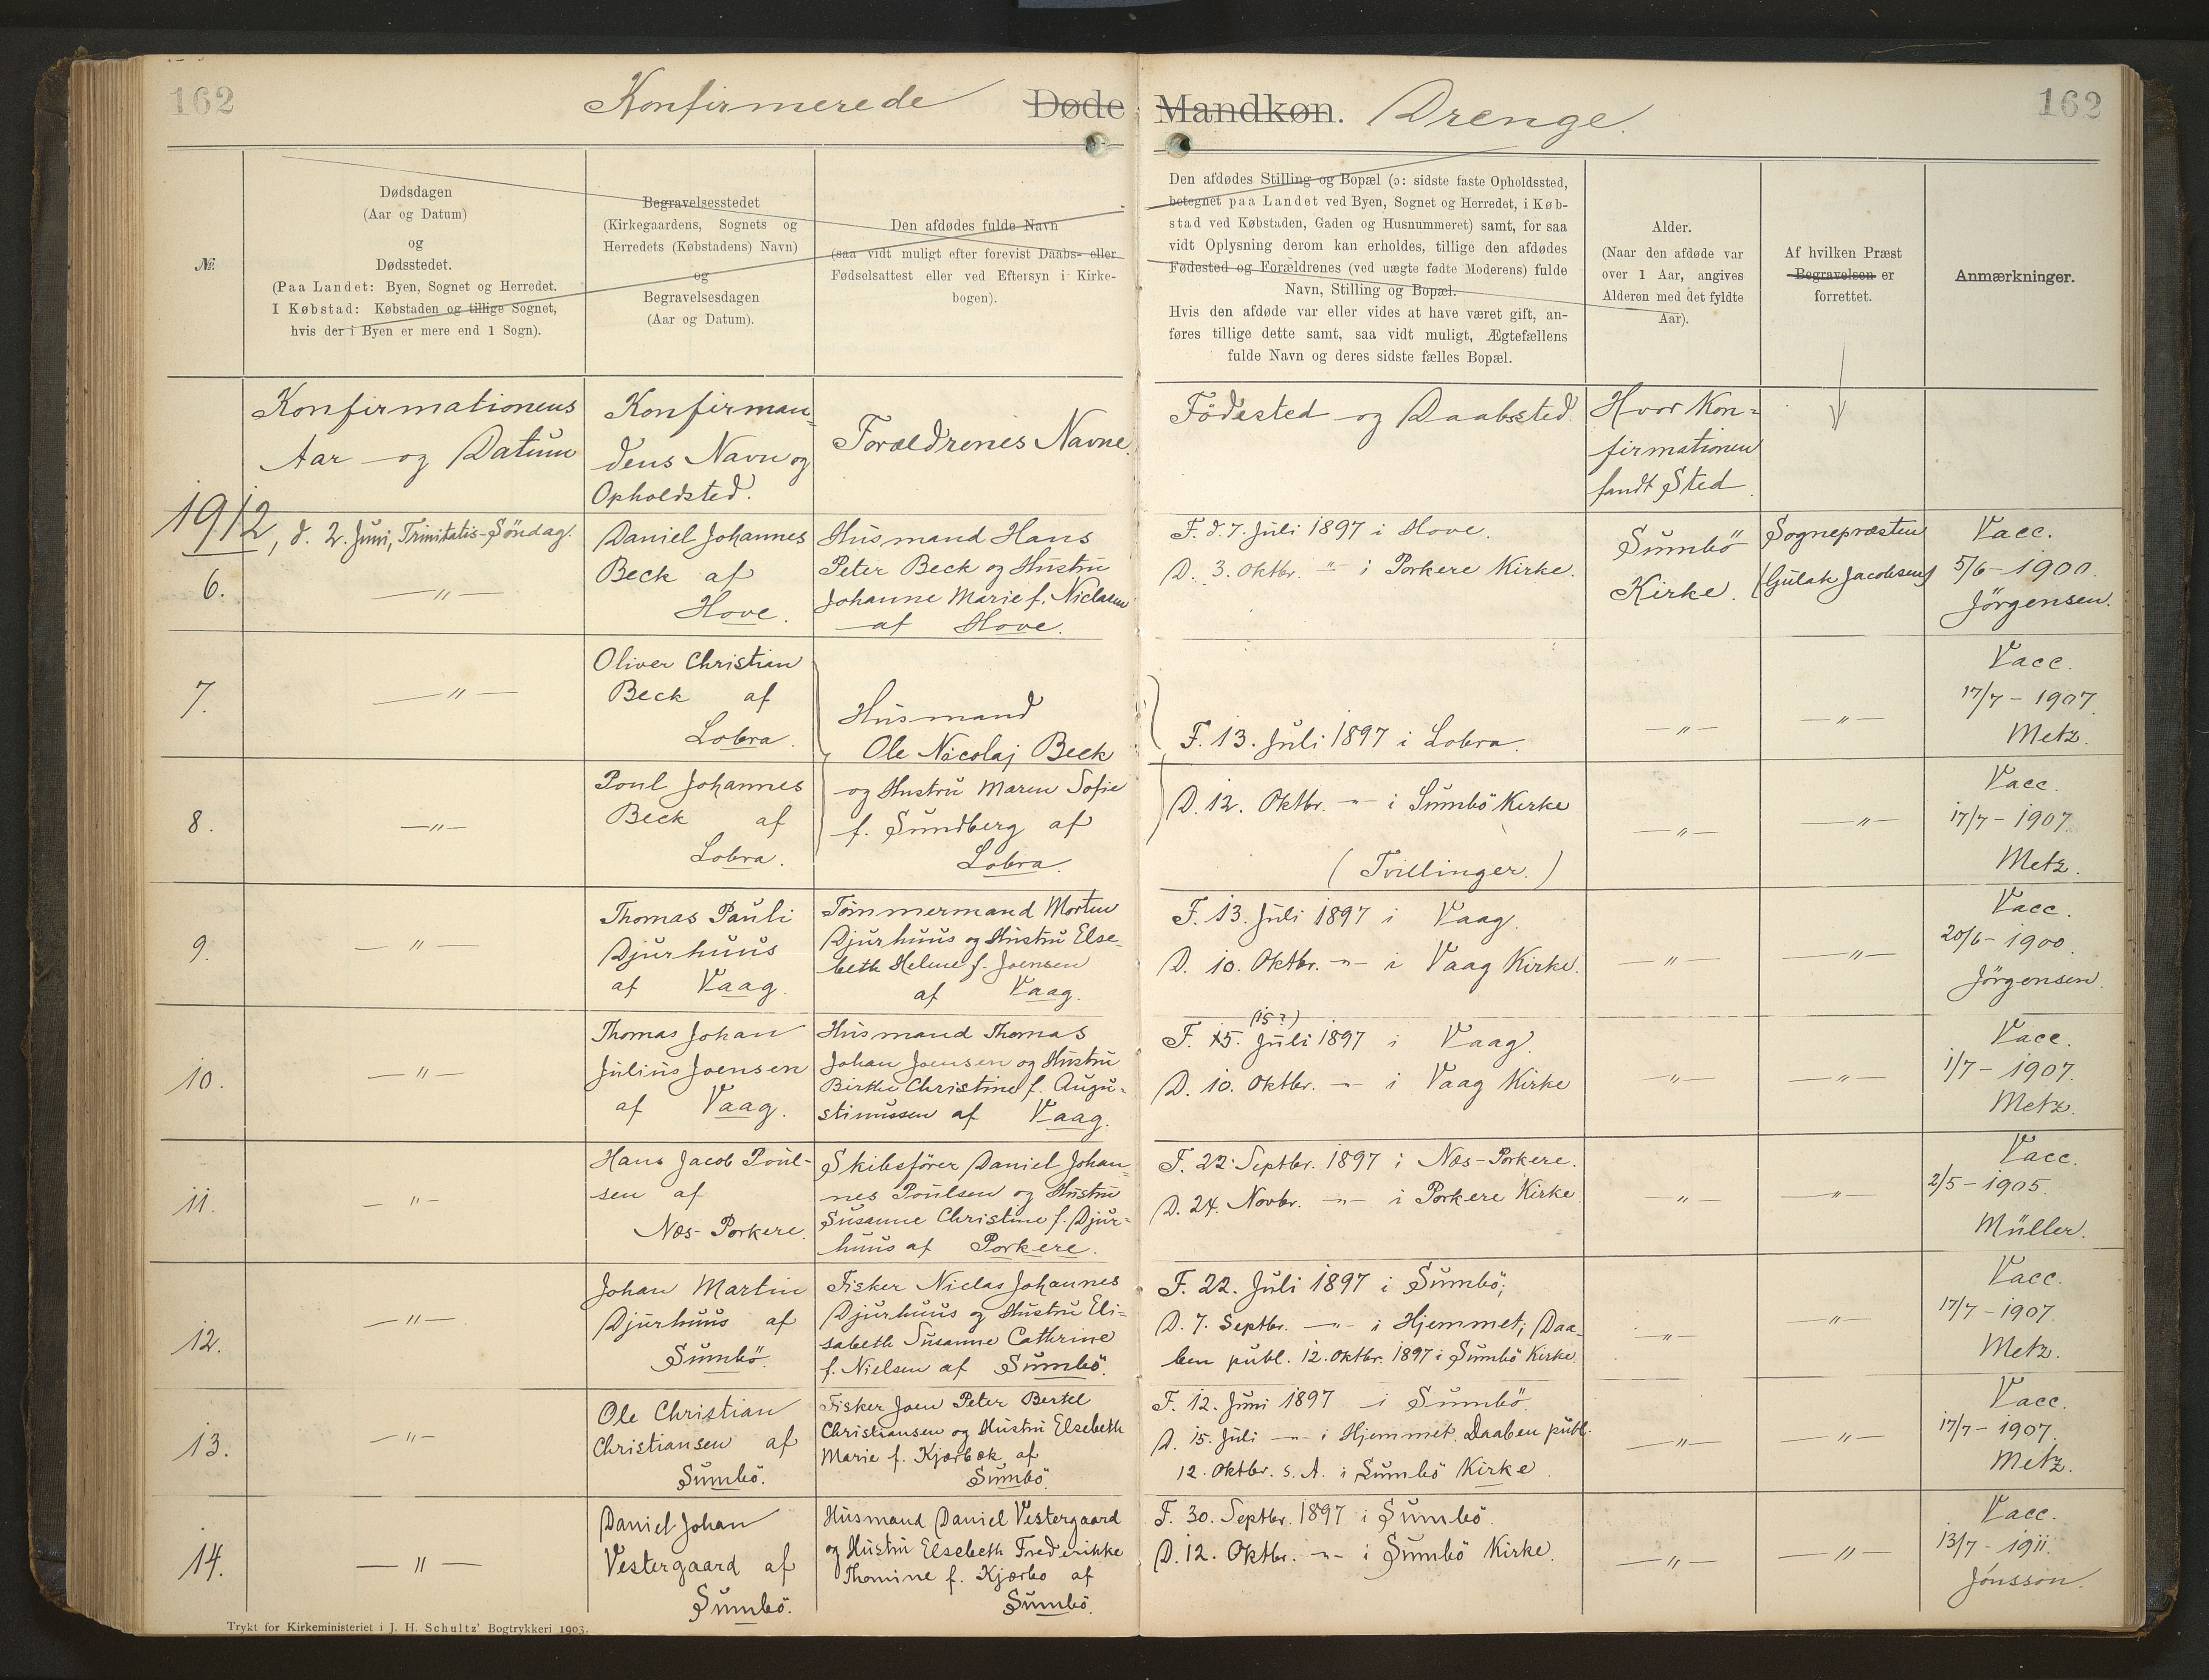 162
Konfirmerede Døde Mandkøn. Drenge.
162
№
Dødsdagen
(Aar og Datum)
og
Dødsstedet.
(Paa Landet: Byen, Sognet og Herredet.
I Købstad: Købstaden og tillige Sognet,
hvis der i Byen er mere end 1 Sogn).
Begravelsesstedet
(Kirkegaardens, Sognets og
Herredets (Købstadens) Navn)
og
Begravelsesdagen
(Aar og Datum).
Den afdødes fulde Navn
(saa vidt muligt efter forevist Daabs- eller
Fødselsattest eller ved Eftersyn i Kirke-
bogen).
Den afdødes Stilling og Bopæl (ɔ: sidste faste Opholdssted,
betegnet paa Landet ved Byen, Sognet og Herredet, i Køb-
stad ved Købstaden, Gaden og Husnummeret) samt, for saa
vidt Oplysning derom kan erholdes, tillige den afdødes
Fødested og Forældrenes (ved uægte fødte Moderens) fulde
Navn, Stilling og Bopæl.
Hvis den afdøde var eller vides at have været gift, an-
føres tillige dette samt, saa vidt muligt, Ægtefællens
fulde Navn og deres sidste fælles Bopæl.
Alder.
(Naar den afdøde var
over 1 Aar, angives
Alderen med det fyldte
Aar).
Af hvilken Præst
Begravelsen er
forrettet.
Anmærkninger.
Konfirmationens
Aar og Datum
Konfirman-
dens Navn og
Opholdsted.
Forældrenes Navne.
Födested og Daabsted.
Hvor Kon=
firmationen
fandt Sted.
1912, d. 2. Juni, Trinitatis-Söndag.
6.
—〃—
Daniel Johannes
Beck af
Hove.
Husmand Hans
Peter Beck og Hustru
Johanne Marie f. Niclasen
af Hove.
F. d. 7. Juli 1897 i Hove.
D. 3. Oktbr. —〃— i Porkere Kirke.
Sumbö
Kirke.
Sognepræsten
(Gulak Jacobsen)
Vacc.
5/6-1900.
Jörgensen.
7.
—〃—
Oliver Christian
Beck af
Lobra.
Husmand
Ole Nicolaj Beck
F. 13. Juli 1897 i Lobra.
—〃—
—〃—
Vacc.
17/7-1907.
Metz.
8.
—〃—
Poul Johannes
Beck af
Lobra.
og Hustru Maren Sofie
f. Sundberg af
Lobra.
D. 12. Oktbr. —〃— i Sumbö Kirke
(Tvillinger.)
—〃—
—〃—
Vacc.
17/7-1907.
Metz.
9.
—〃—
Thomas Pauli
Djurhuus
af Vaag.
Tömmermand Morten
Djurhuus og Hustru Else-
beth Helene f. Joensen
af Vaag.
F. 13. Juli 1897 i Vaag.
D. 10. Oktbr. —〃— i Vaag Kirke.
—〃—
—〃—
Vacc.
20/6-1900.
Jörgensen.
10.
—〃—
Thomas Johan
Julius Joensen
af Vaag.
Husmand Thomas
Johan Joensen og Hustru
Birthe Christine f. Augu-
stinussen af Vaag.
(15?)
F. 15. Juli 1897 i Vaag.
D. 10. Oktbr. —〃— i Vaag Kirke
—〃—
—〃—
Vacc.
1/7-1907.
Metz.
11.
—〃—
Hans Jacob Poul-
sen af
Næs-Porkere.
Skibsförer Daniel Johan-
nes Poulsen og Hustru
Susanne Christine f. Djur=
huus af Porkere.
F. 22. Septbr. 1897 i Næs-Porkere.
D. 24. Novbr. —〃— i Porkere Kirke.
—〃—
—〃—
Vacc.
2/5-1905.
Müller.
12.
—〃—
Johan Martin
Djurhuus af
Sumbö.
Fisker Niclas Johannes
Djurhuus og Hustru Eli=
sabeth Susanne Cathrine
f. Nielsen af Sumbö.
F. 22. Juli 1897 i Sumbö;
D. 7. Septbr. —〃— i Hjemmet; Daa-
ben publ. 12. Oktbr. 1897 i Sumbö Kirke.
—〃—
—〃—
Vacc.
17/7-1907.
Metz.
13.
—〃—
Ole Christian
Christiansen af
Sumbö.
Fisker Joen Peter Bertel
Christiansen og Hustru Elsebeth
Marie f. Kjærbæk af
Sumbö.
F. 12. Juni 1897 i Sumbö.
D. 15. Juli —〃— i Hjemmet. Daaben publ.
12. Oktbr. s. A. i Sumbö Kirke.
—〃—
—〃—
Vacc.
17/7-1907.
Metz.
14.
—〃—
Daniel Johan
Vestergaard af
Sumbö.
Husmand Daniel Vestergaard
og Hustru Elsebeth Frederikke
Thomine f. Kjærbo af
Sumbö.
F. 30. Septbr. 1897 i Sumbö.
D. 12. Oktbr. —〃— i Sumbö Kirke.
—〃—
—〃—
Vacc.
13/7-1911.
Jónsson.
Trykt for Kirkeministeriet i J. H. Schultz' Bogtrykkeri 1903.